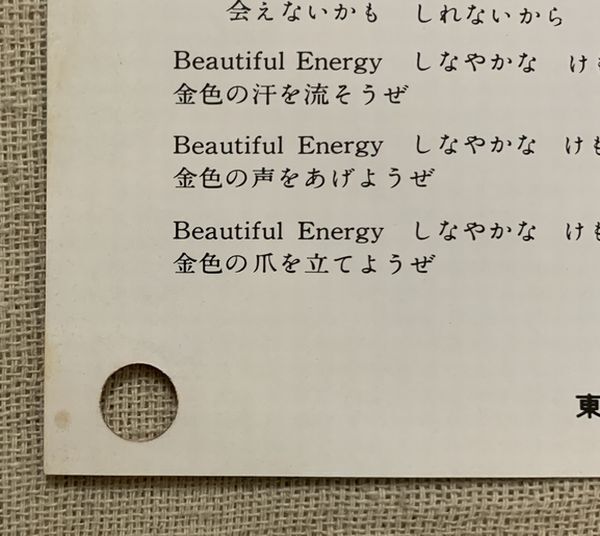 会えないかも　しれないから
Beautiful Energy　しなやかな　け
金色の汗を流そうぜ
Beautiful Energy　しなやかな　けも
金色の声をあげようぜ
Beautiful Energy　しなやかな　けも
金色の爪を立てようぜ
東